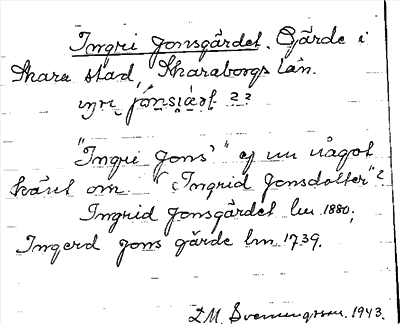 Ingri Jonsgärdet. Gärde i
Skara stad, Skaraborgs län.
"Ingri Jons'" ej nu något
känt om. "Ingrid Jonsdotter"?
Ingrid Jonsgärdet lm 1880;
Ingerd Jons gärde lm 1739.
D.M. Svenningsson. 1943.